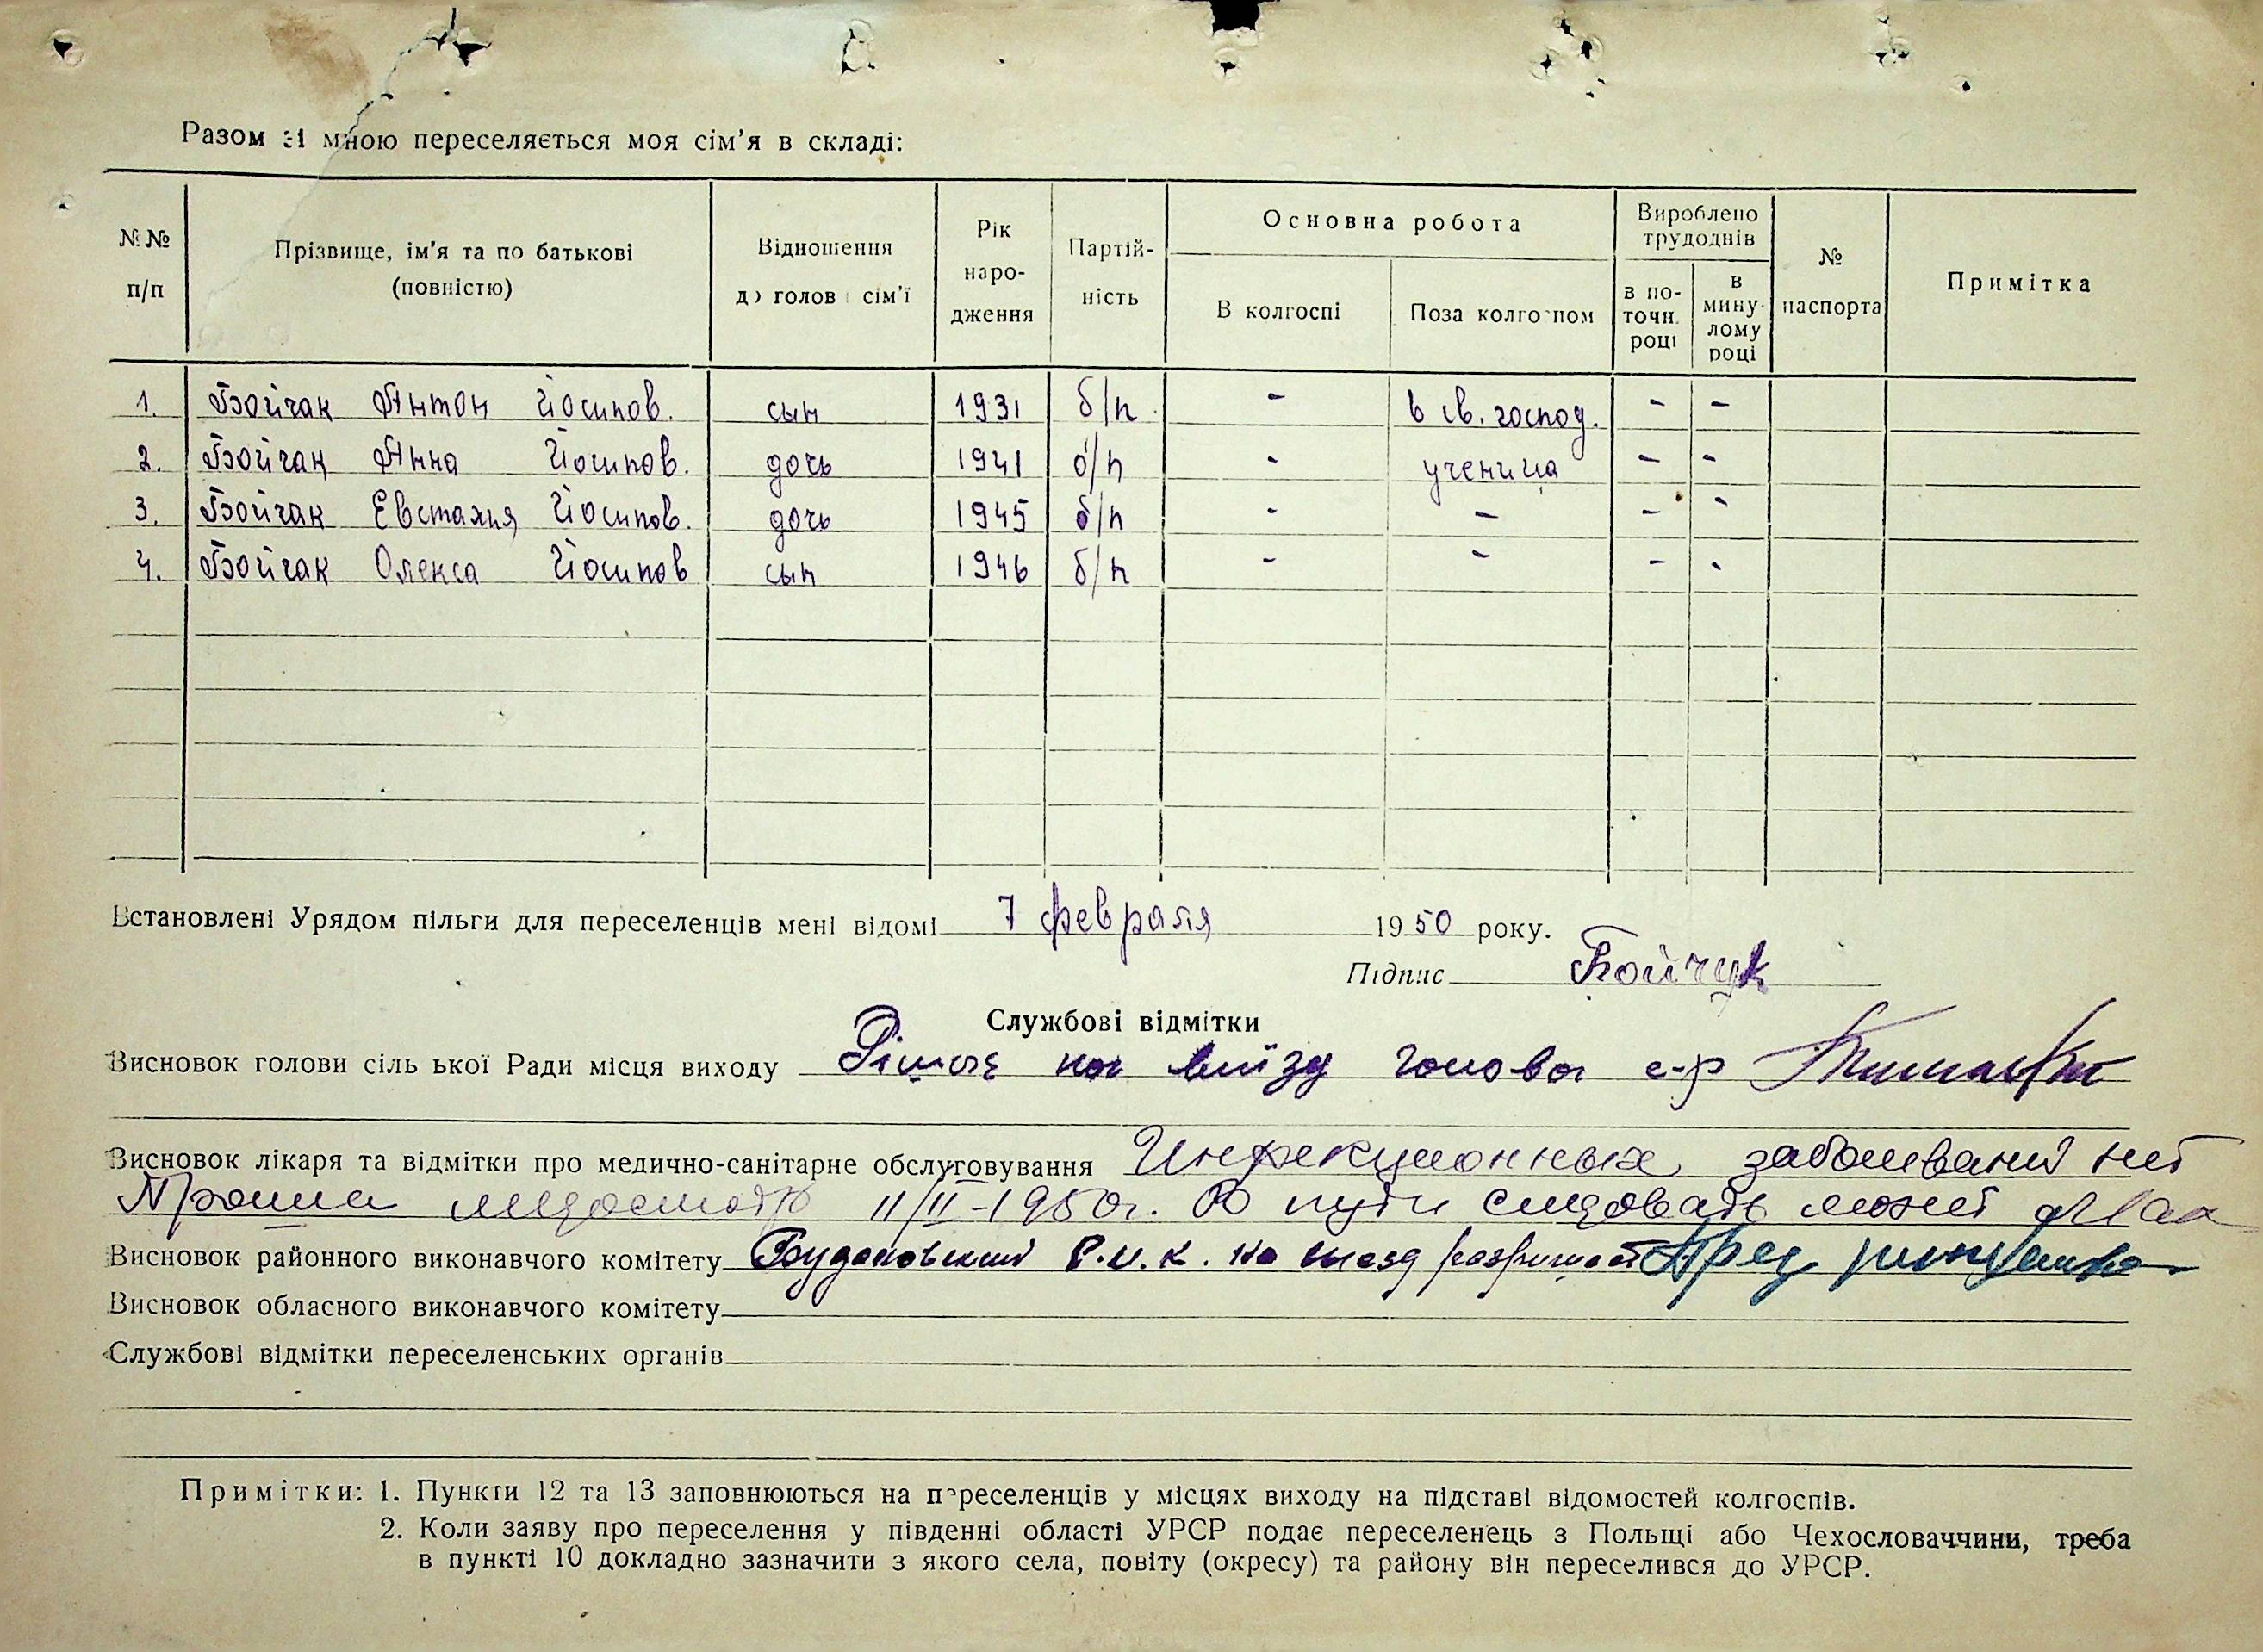 Разом зі мною переселяється моя сім'я в складі:
№№ п/п
Прізвище, ім'я та по батькові (повністю)
Відношення до голови сім'ї
Рік народження
Партійність
Основна робота
В колгоспі
Поза колгоспом
Вироблено трудоднів
в поточн. році
в минулому році
№ паспорта
Примітка
1. Бойчак Антон Йосипов. сын 1931 б/п. - в св. господ. - -
2. Бойчак Анна Йосипов. дочь 1941 б/п - ученица - -
3. Бойчак Евстахия Йосипов. дочь 1945 б/п - - - -
4. Бойчак Олекса Йосипов сын 1946 б/п - - - -
Встановлені Урядом пільги для переселенців мені відомі 7 февраля 1950 року.
Підпис Бойчук
Службові відмітки
Висновок голови сільської Ради місця виходу на виїзд голова с-р
Висновок лікаря та відмітки про медично-санітарне обслуговування Инфекционных заболеваний нет
Прошли медосмотр 11/II-1950г. В пути следовать может
Висновок районного виконавчого комітету Будановский Р.И.К. на выезд разрешает Пред
Висновок обласного виконавчого комітету
Службові відмітки переселенських органів
Примітки: 1. Пункти 12 та 13 заповнюються на переселенців у місцях виходу на підставі відомостей колгоспів.
2. Коли заяву про переселення у південні області УРСР подає переселенець з Польщі або Чехословаччини, треба
в пункті 10 докладно зазначити з якого села, повіту (окресу) та району він переселився до УРСР.